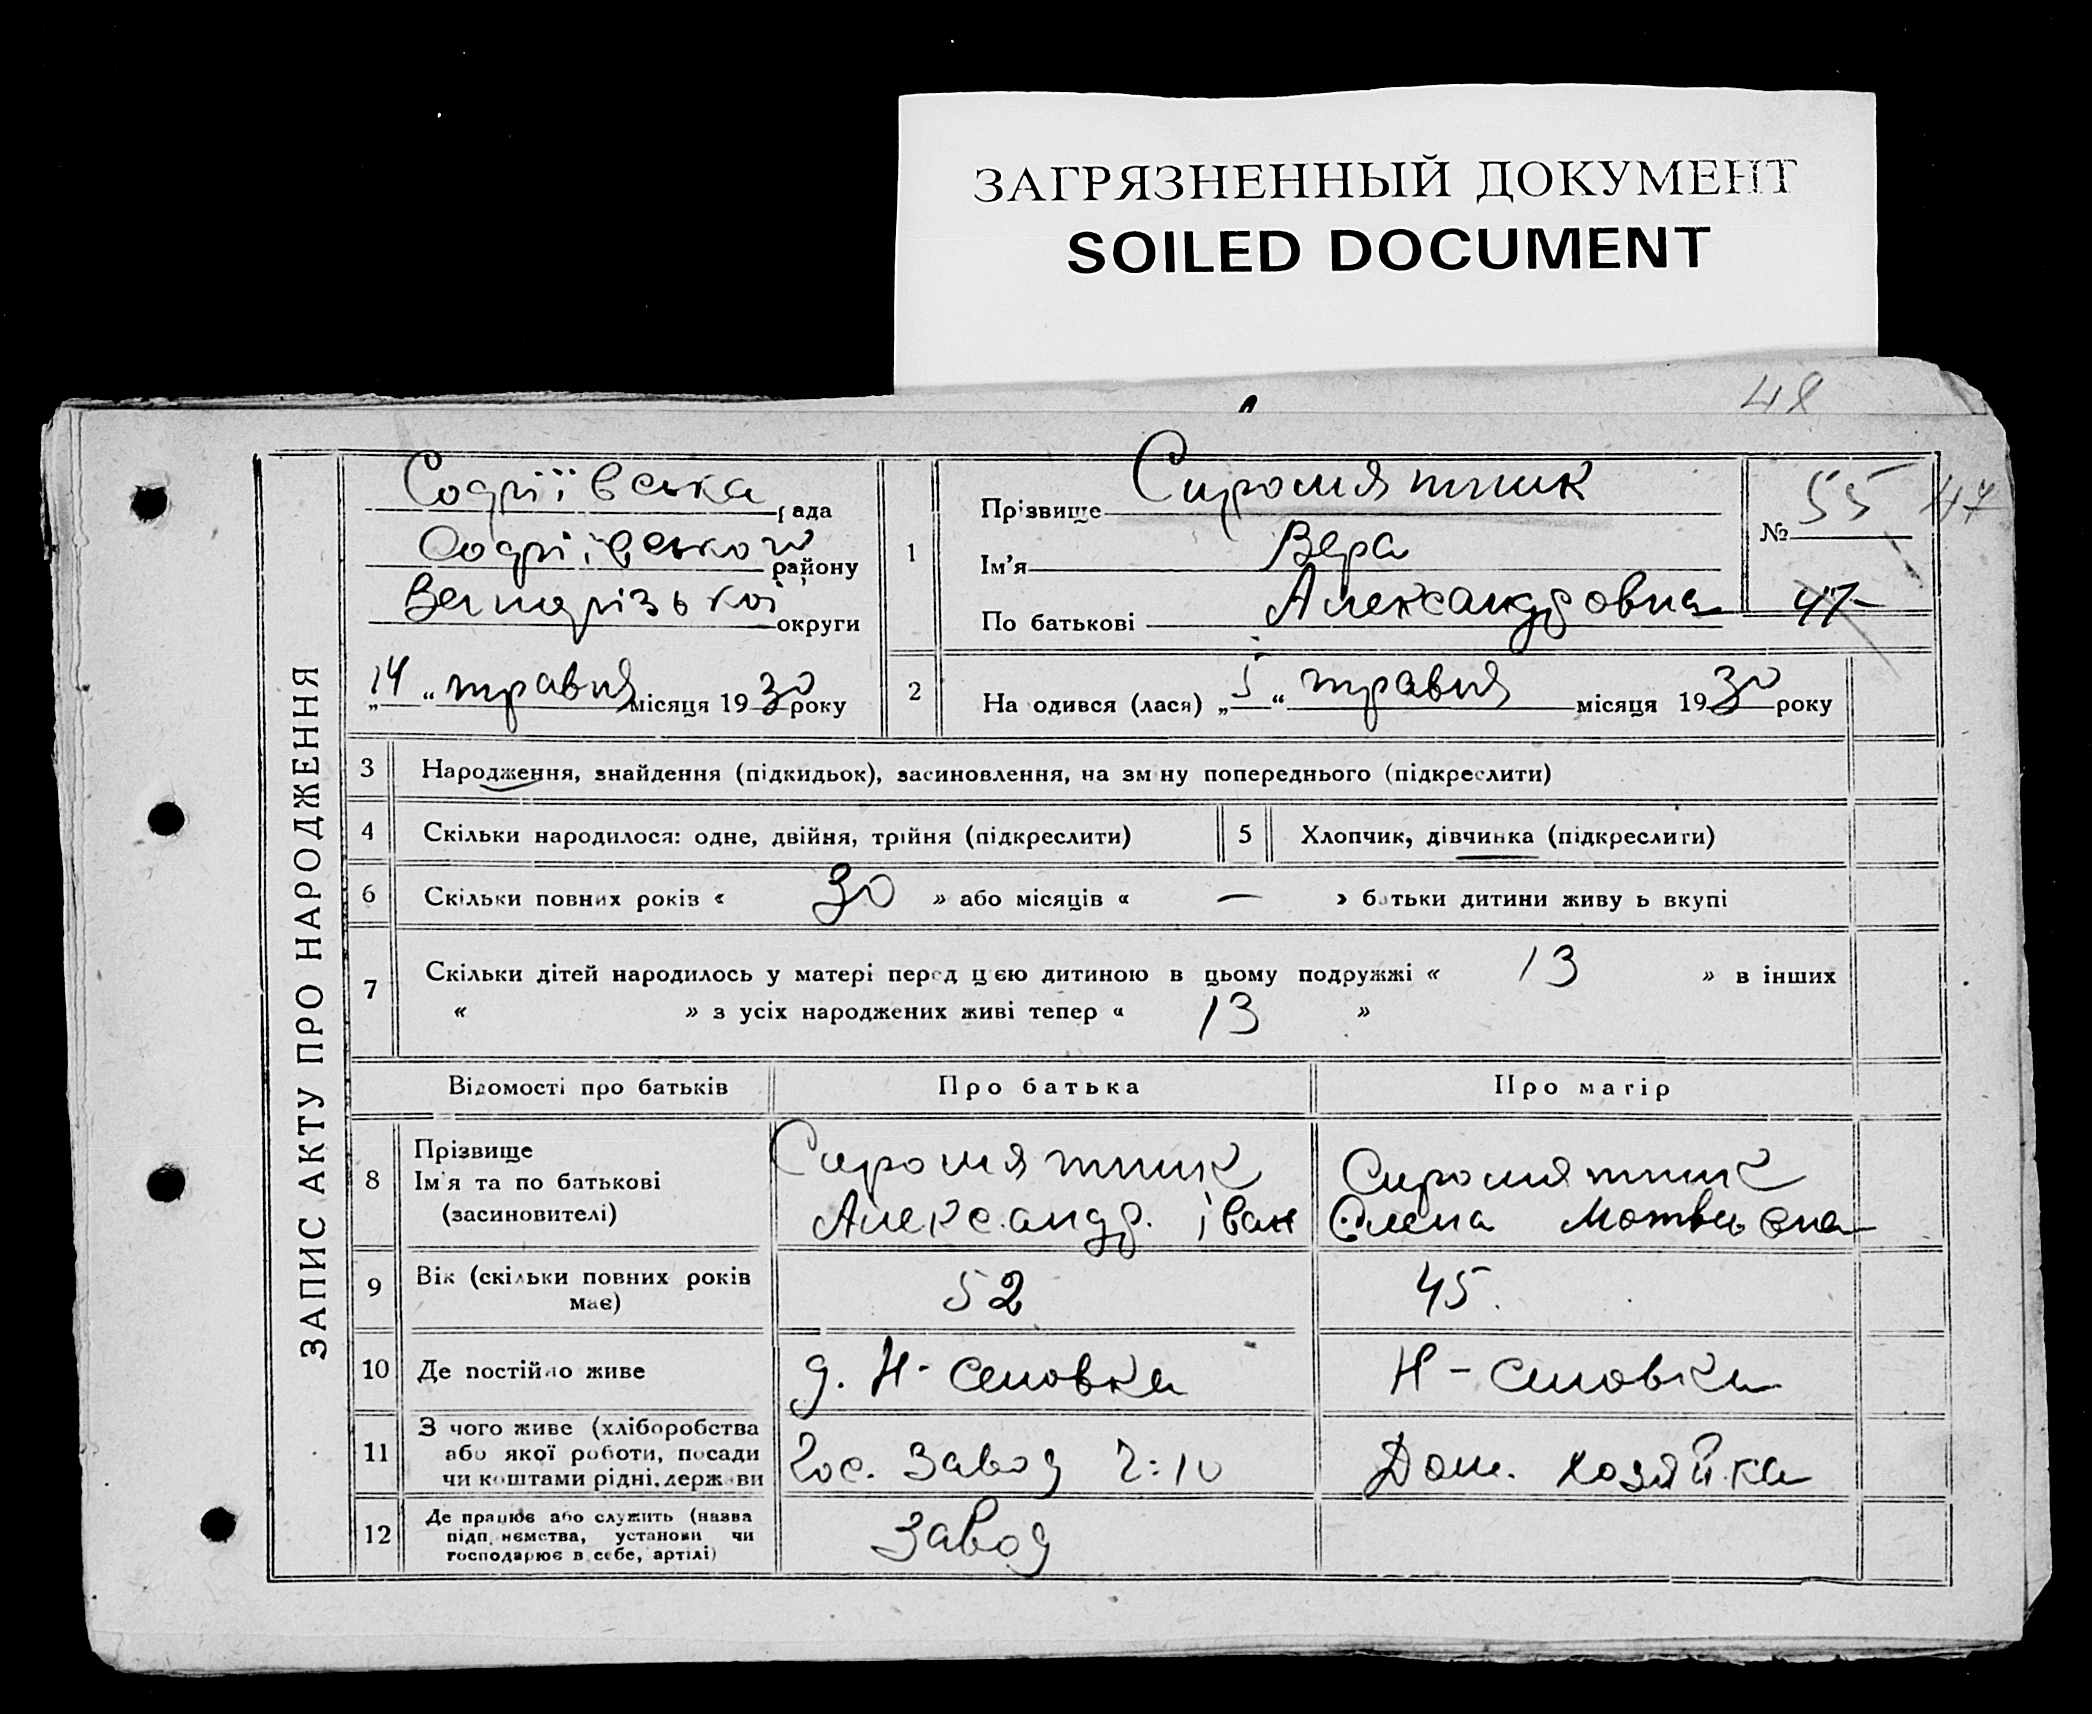 ЗАГРЯЗНЕННЫЙ ДОКУМЕНТ
SOILED DOCUMENT
48
ЗАПИС АКТУ ПРО НАРОДЖЕННЯ
рада
району
округи
„14“ травня місяця 1930 року
1
Прізвище Сиромятник
Ім'я Вера
По батькові Александровна
№ 55
47
47
2 Народився (лася) „5“ травня місяця 1930 року
3 Народження, знайдення (підкидьок), засиновлення, на зміну попереднього (підкреслити)
4 Скільки народилося: одне, двійня, трійня (підкреслити)
5 Хлопчик, дівчинка (підкреслити)
6 Скільки повних років « 30 » або місяців « — » батьки дитини живуть вкупі
7 Скільки дітей народилось у матері перед цією дитиною в цьому подружжі « 13 » в інших
« » з усіх народжених живі тепер « 13 »
Відомості про батьків Про батька Про матір
8 Прізвище
Ім'я та по батькові
(засиновителі)
Сиромятник
Александр. Іван
Сиромятник
Елена
9 Вік (скільки повних років
має)
52
45.
10 Де постійно живе
11 З чого живе (хліборобства
або якої роботи, посади
чи коштами рідні, держави
Гос. завод
Дом. хозяйка
12 Де працює або служить (назва
підприємства, установи чи
господарює в себе, артілі)
Завод